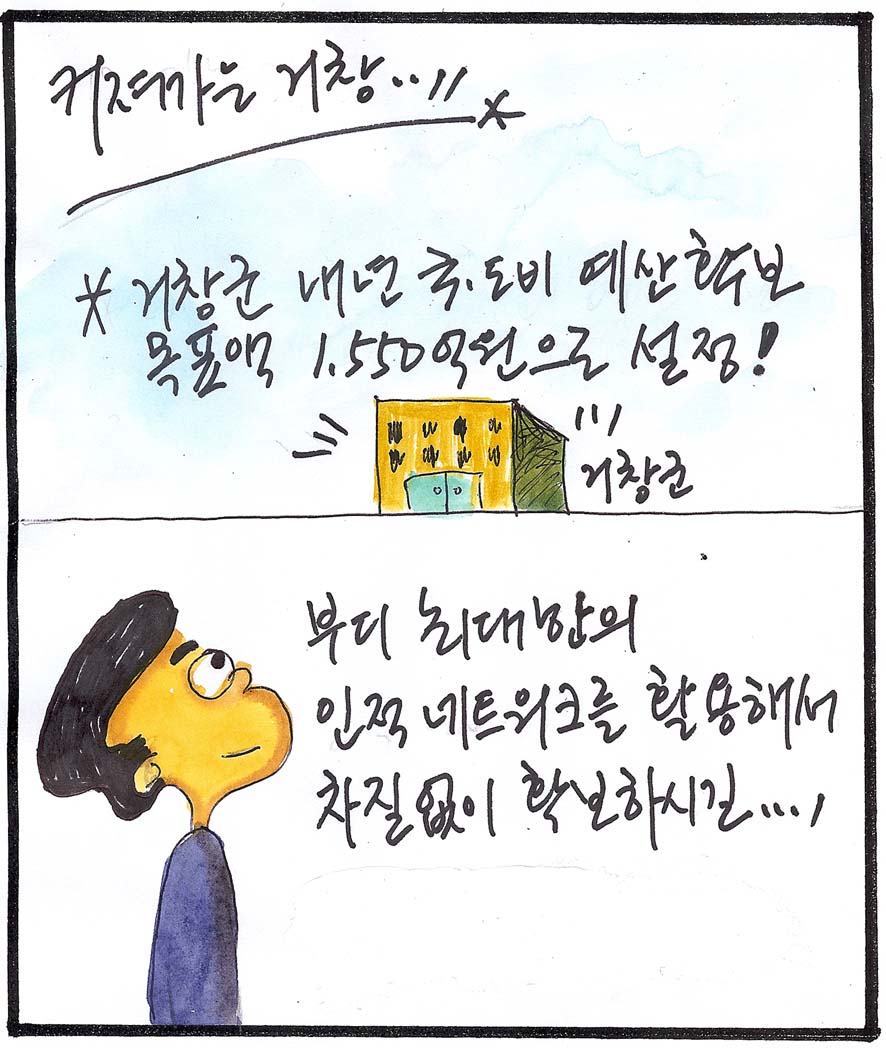 커져가는 거창..!!*
* 거창군 내년 국.도비 예산확보
목표액 1.550억원으로 설정!
거창군
부디 최대한의
인적 네트워크를 활용해서
차질없이 확보하시길...,